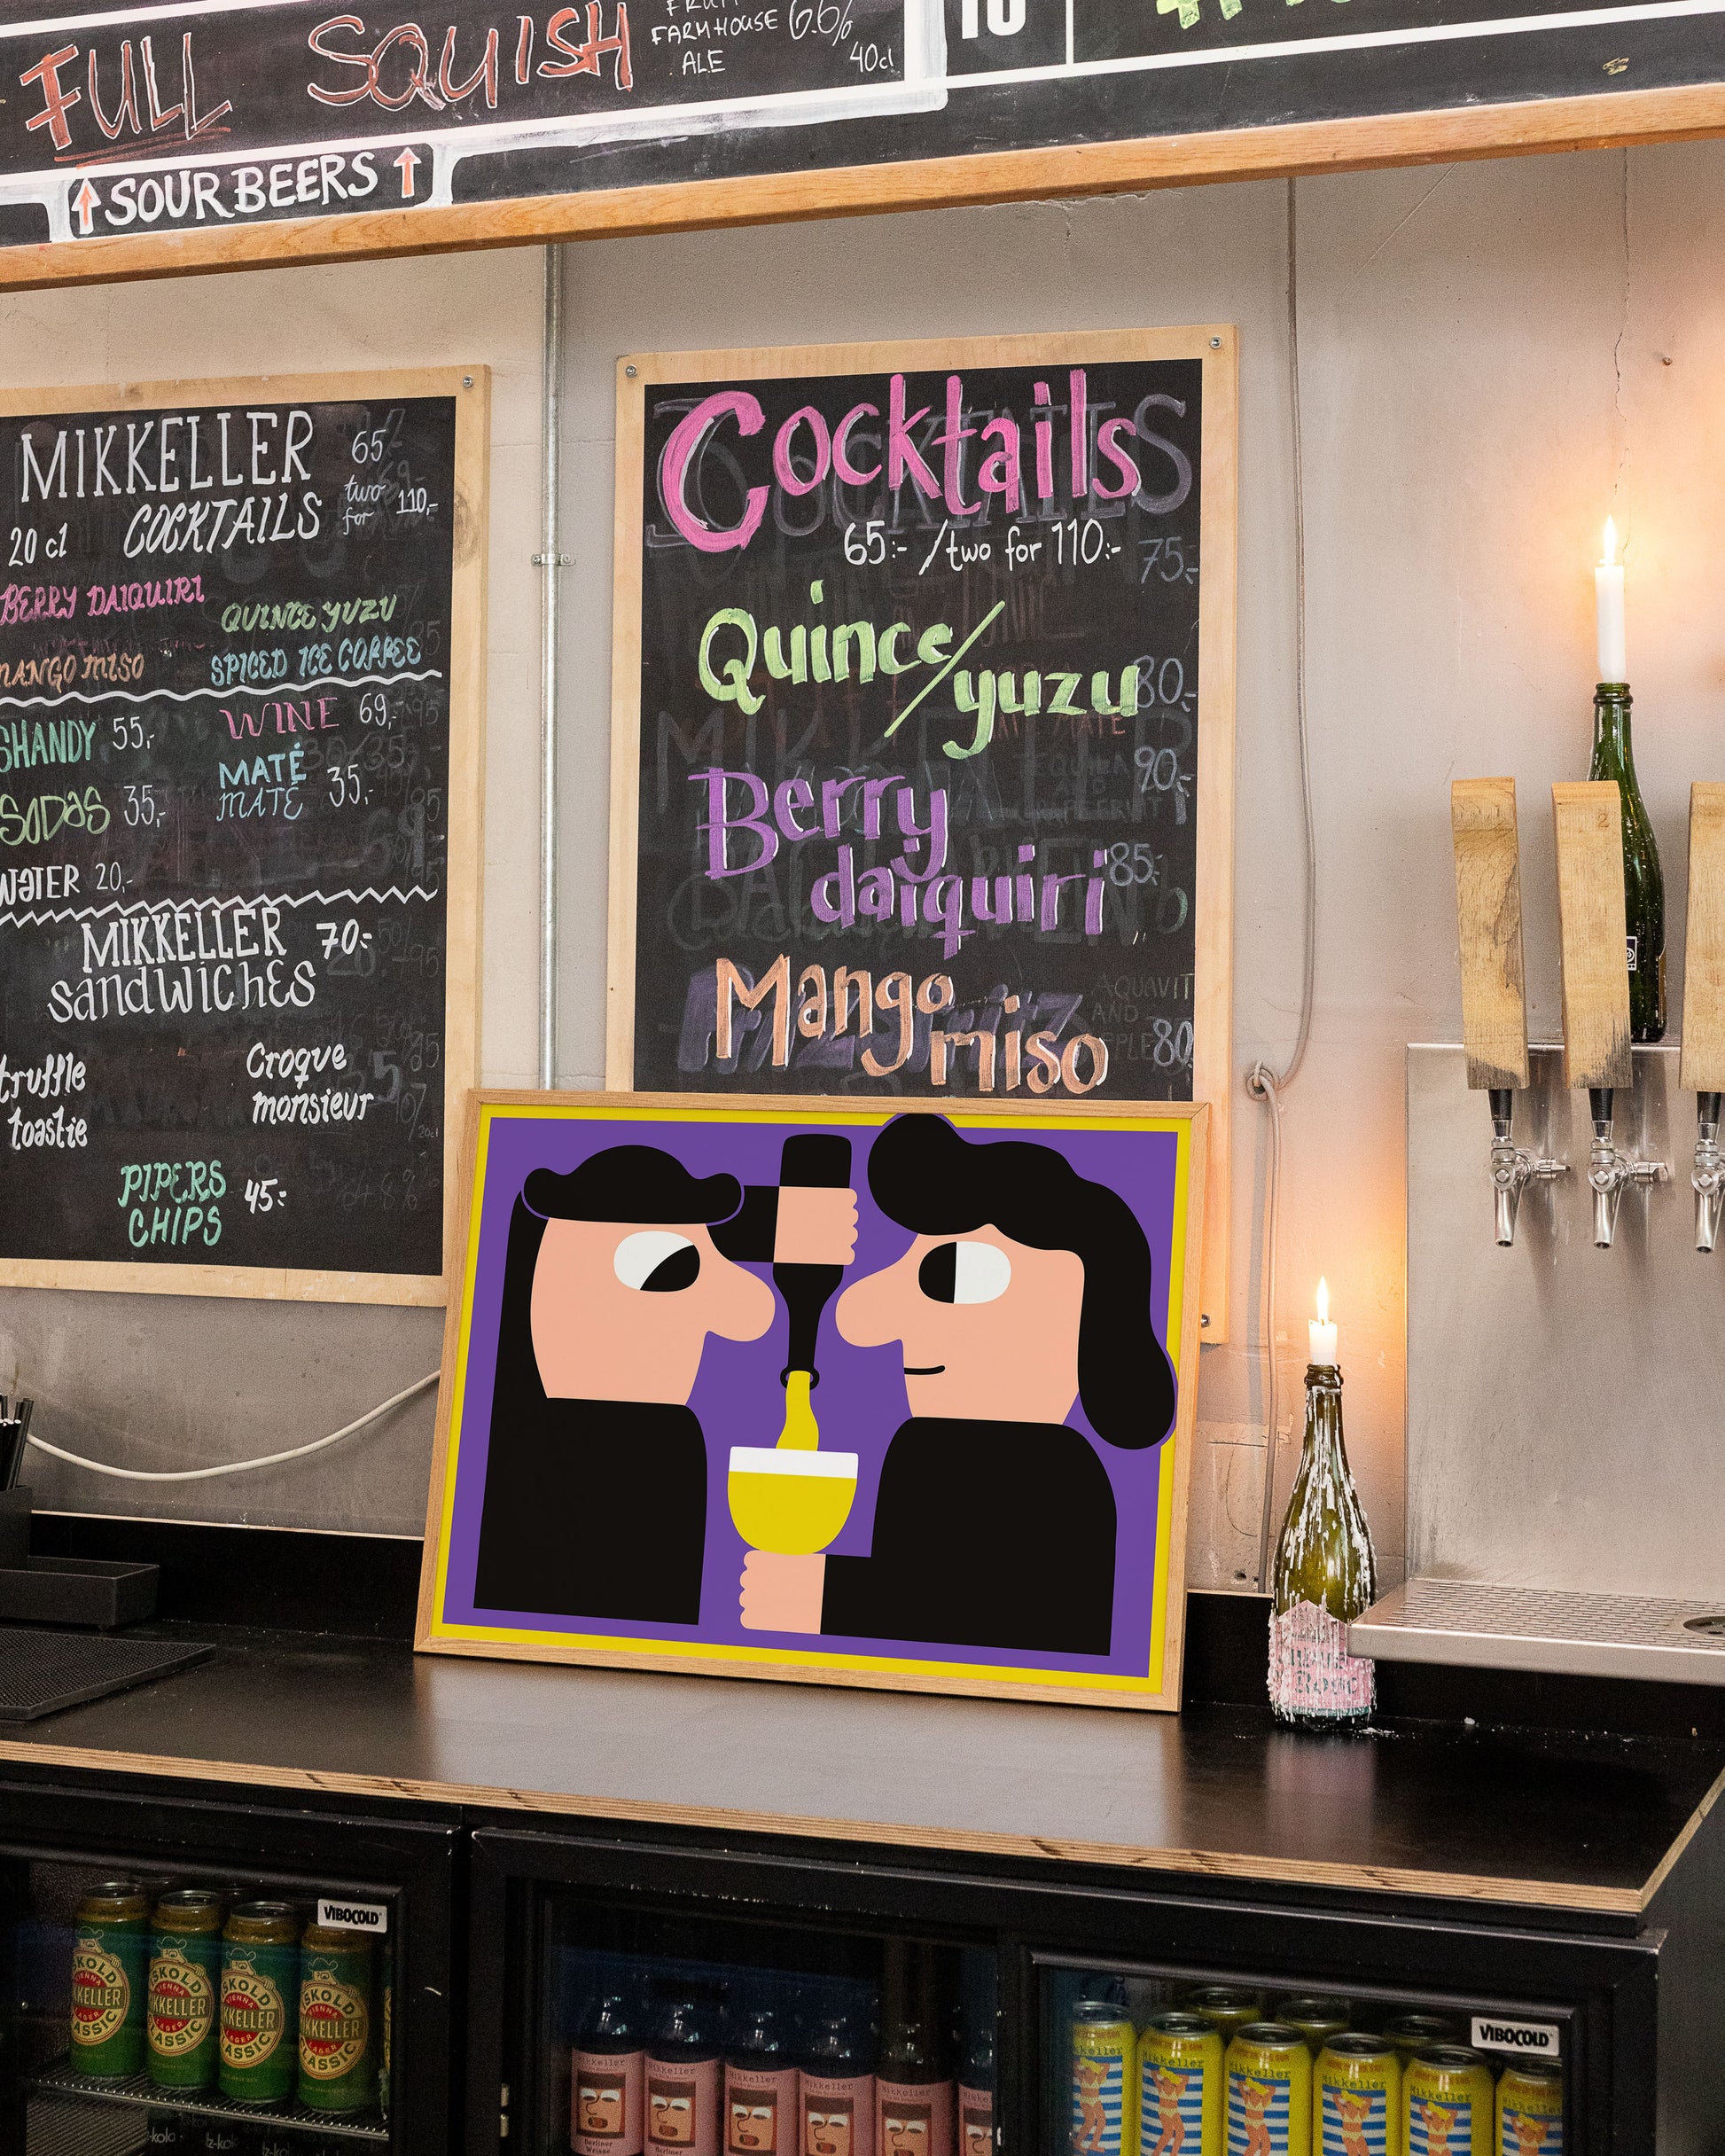 FULL SQUISH
FRUIT
FARMHOUSE 6.6%
ALE
40cl
10
↑ SOUR BEERS ↑
MIKKELLER
COCKTAILS
65
two for 110,-
20 cl
BERRY DAIQUIRI
QUINCE YUZU
MANGO MISO
SPICED ICE COFFEE
SHANDY 55,-
WINE 69,-
MATÉ
MATÉ 35,-
SODAS 35,-
WATER 20,-
MIKKELLER 70:-
sandwiches
truffle
toastie
Croque
monsieur
PIPERS
CHIPS 45:-
Cocktails
65:- / two for 110:-
75:-
Quince/
yuzu
80,-
90,-
Berry
daiquiri
85:-
Mango
miso
AQUAVIT
AND
80
2
VIBOCOLD
ISKOLD
VIENNA
MIKKELLER
LAGER
CLASSIC
Mikkeller
Berliner
Weisse
Mikkeller
VIBOCOLD